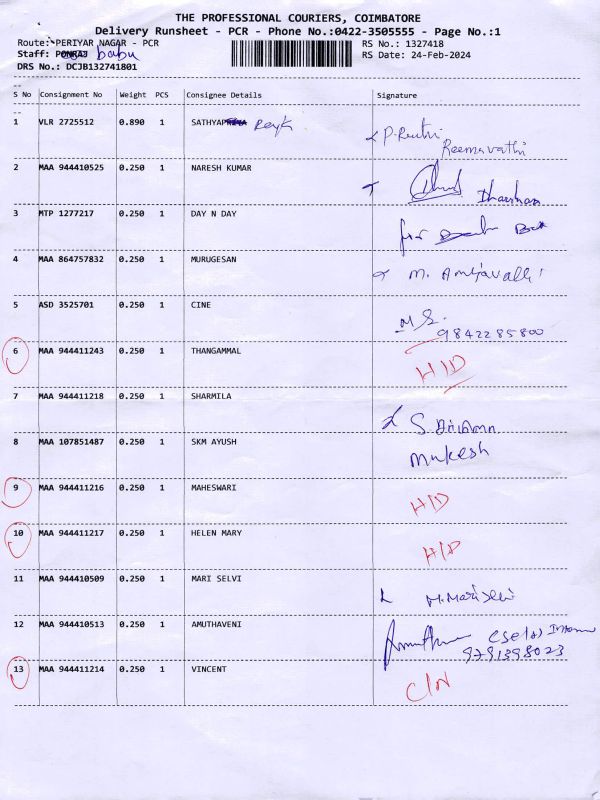 THE PROFESSIONAL COURIERS, COIMBATORE
Delivery Runsheet - PCR - Phone No.:0422-3505555 - Page No.:1
Route: PERIYAR NAGAR - PCR RS No.: 1327418
Staff: PONRAJ babu RS Date: 24-Feb-2024
DRS No.: DCJB132741801
S No Consignment No Weight PCS Consignee Details Signature
1 VLR 2725512 0.890 1 P. Reethi
Reemavathi
2 MAA 944410525 0.250 1 NARESH KUMAR Dharshan
3 MTP 1277217 0.250 1 DAY N DAY for
4 MAA 864757832 0.250 1 MURUGESAN
5 ASD 3525701 0.250 1 CINE M.S.
9842285800
6 MAA 944411243 0.250 1 THANGAMMAL H/D
7 MAA 944411218 0.250 1 SHARMILA
8 MAA 107851487 0.250 1 SKM AYUSH Mukesh
9 MAA 944411216 0.250 1 MAHESWARI H/D
10 MAA 944411217 0.250 1 HELEN MARY H/D
11 MAA 944410509 0.250 1 MARI SELVI M. Mariselvi
12 MAA 944410513 0.250 1 AMUTHAVENI (self)
9791398023
13 MAA 944411214 0.250 1 VINCENT C/N